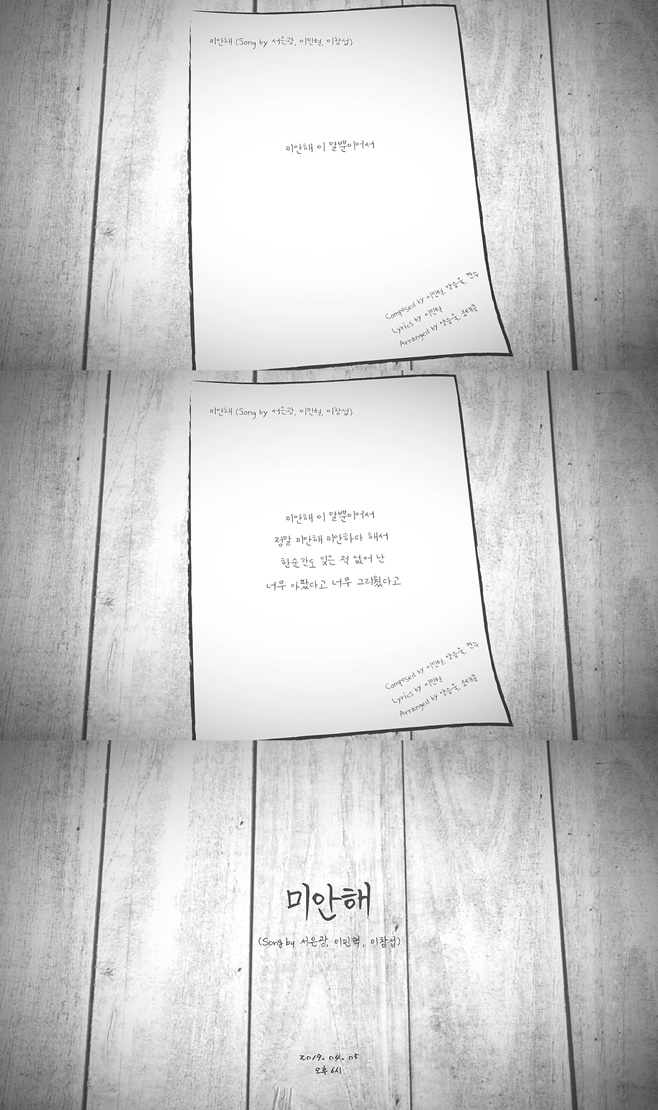 미안해 (Song by 서은광, 이민혁, 이창섭)
미안해 이 말뿐이어서
Composed by 이민혁, 양승욱, 관수
Lyrics by 이민혁
Arranged by 양승욱,
미안해 (Song by 서은광, 이민혁, 이창섭)
미안해 이 말뿐이어서
정말 미안해 미안하다 해서
한순간도 잊은 적 없어 난
너무 아팠다고 너무 그리웠다고
Composed by 이민혁, 양승욱,
Lyrics by 이민혁
Arranged by 양승욱,
미안해
(Song by 서은광, 이민혁, 이창섭)
2019. 04. 05
오후 6시